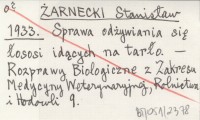 oż
ŻARNECKI Stanisław
1933. Sprawa odżywiania się
łososi idących na tarło. —
Rozprawy Biologiczne z Zakresu
Medycyny Weterynaryjnej, Rolnictwa
i Hodowli 9.